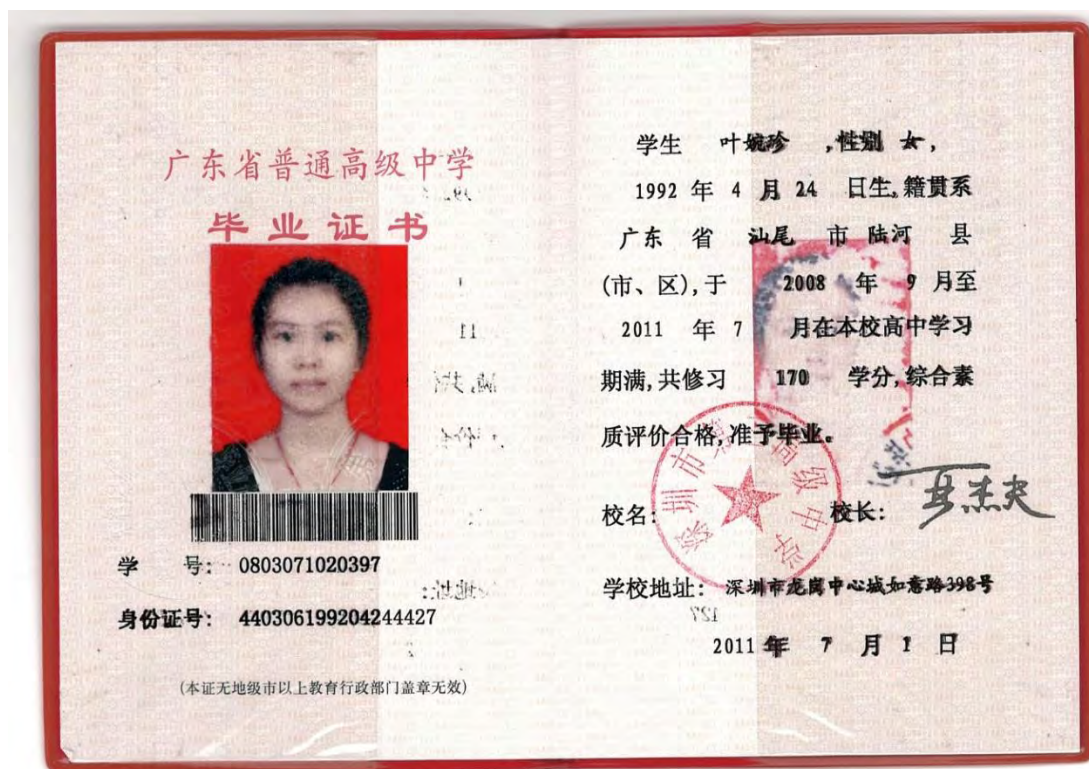 广东省普通高级中学
毕业证书
学 号: 0803071020397
身份证号: 440306199204244427
(本证无地级市以上教育行政部门盖章无效)
学生 叶婉珍 ,性别 女,
1992 年 4 月 24 日生,籍贯系
广东 省 汕尾 市 陆河 县
(市、区),于 2008 年 9 月至
2011 年 7 月在本校高中学习
期满,共修习 170 学分,综合素
质评价合格,准予毕业。
校名: 校长:
学校地址: 深圳市龙岗中心城如意路398号
2011 年 7 月 1 日